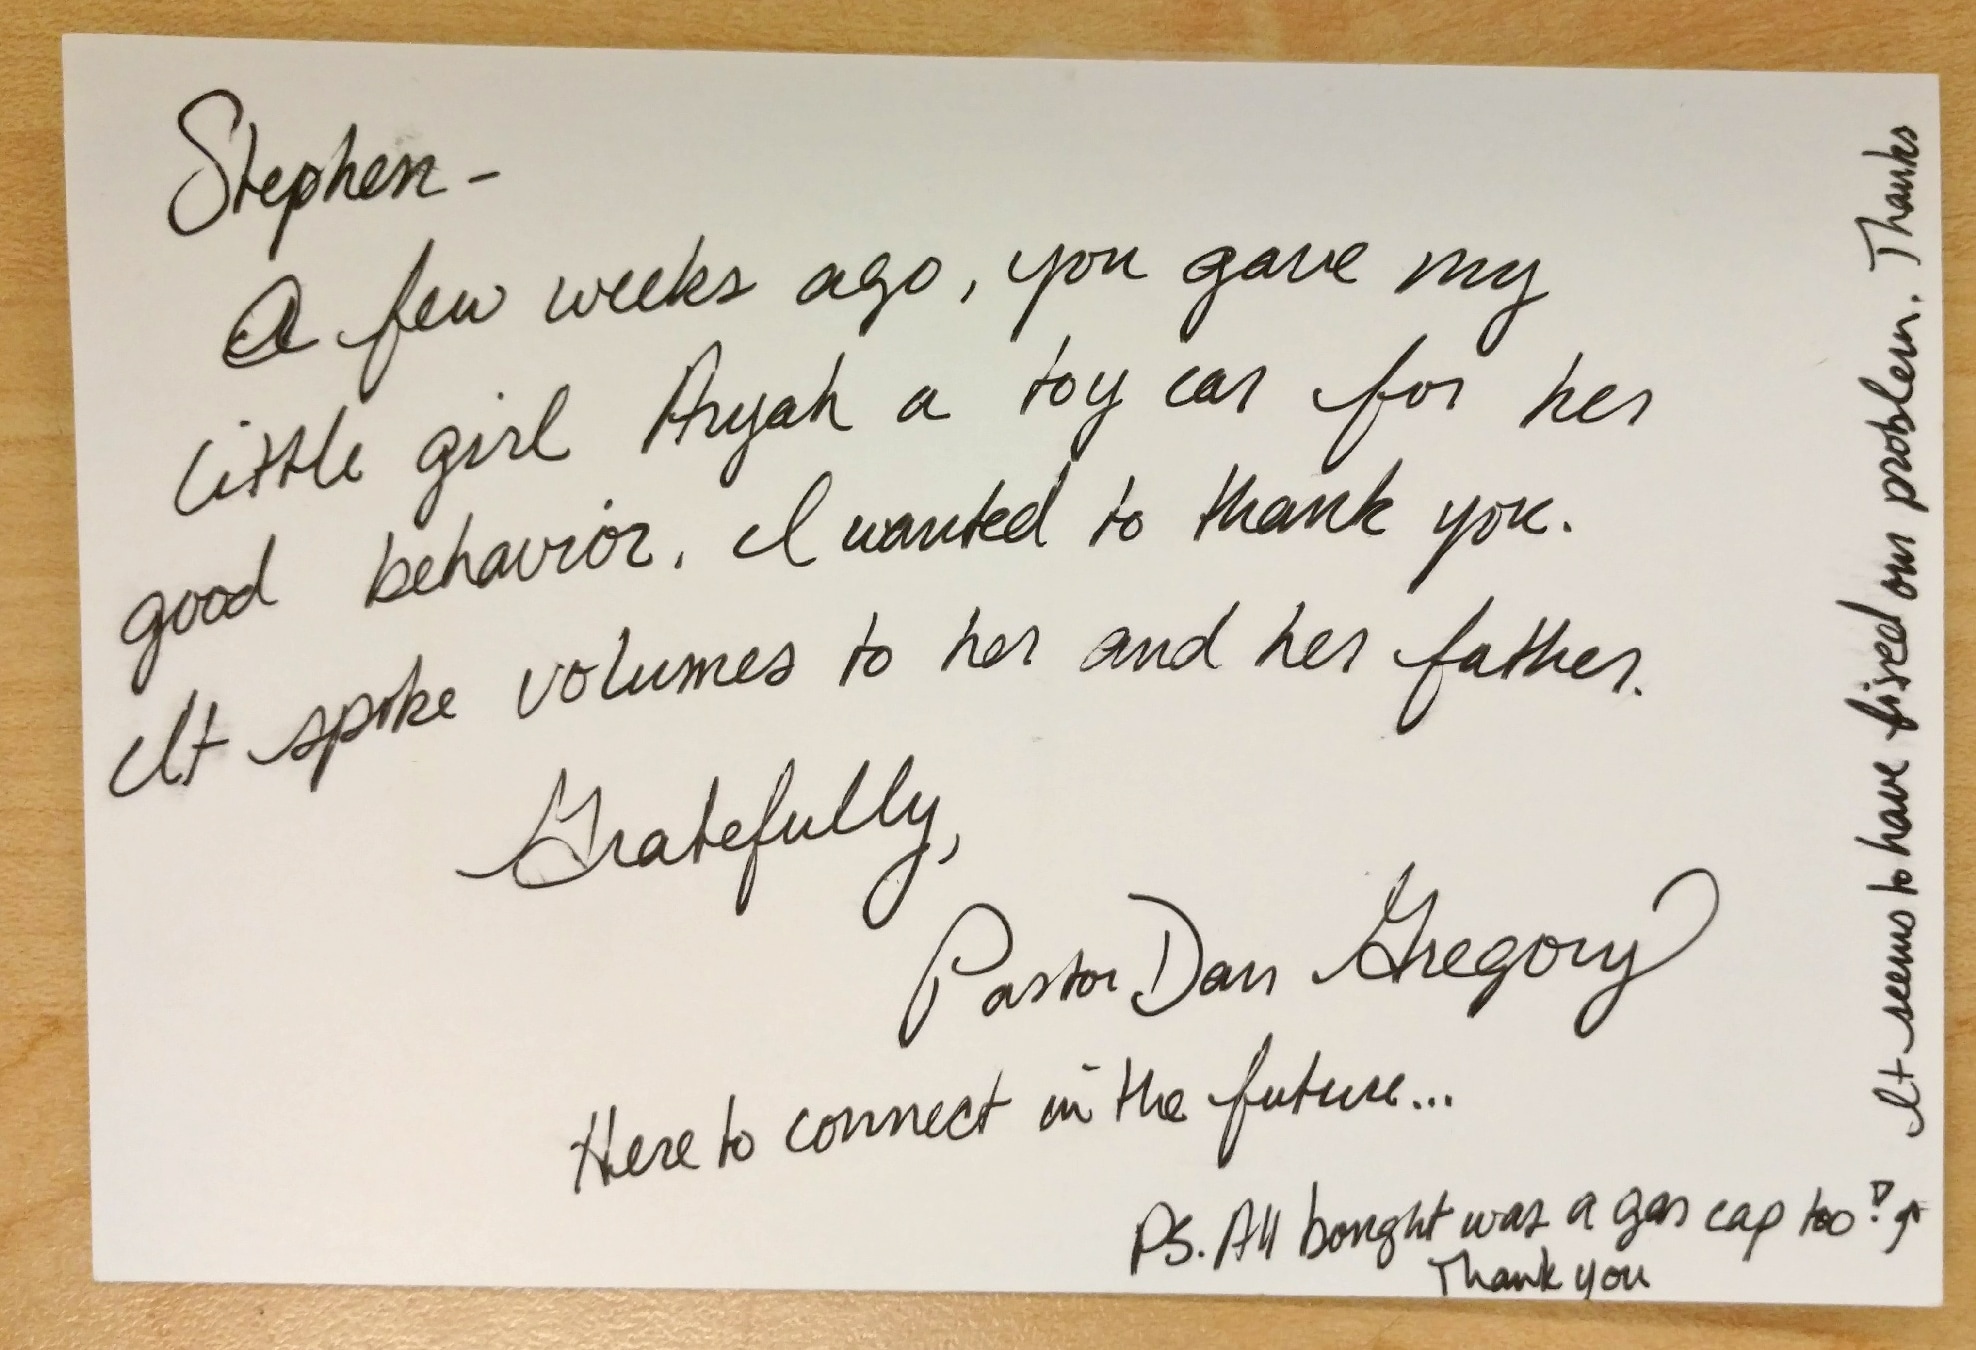 Stephen -
A few weeks ago, you gave my
little girl Aryah a toy car for her
good behavior. I wanted to thank you.
It spoke volumes to her and her father.
Gratefully,
Pastor Dan Gregory
Here to connect in the future...
PS. All bought was a gas cap too!
Thank you
It seems to have fixed our problem. Thanks